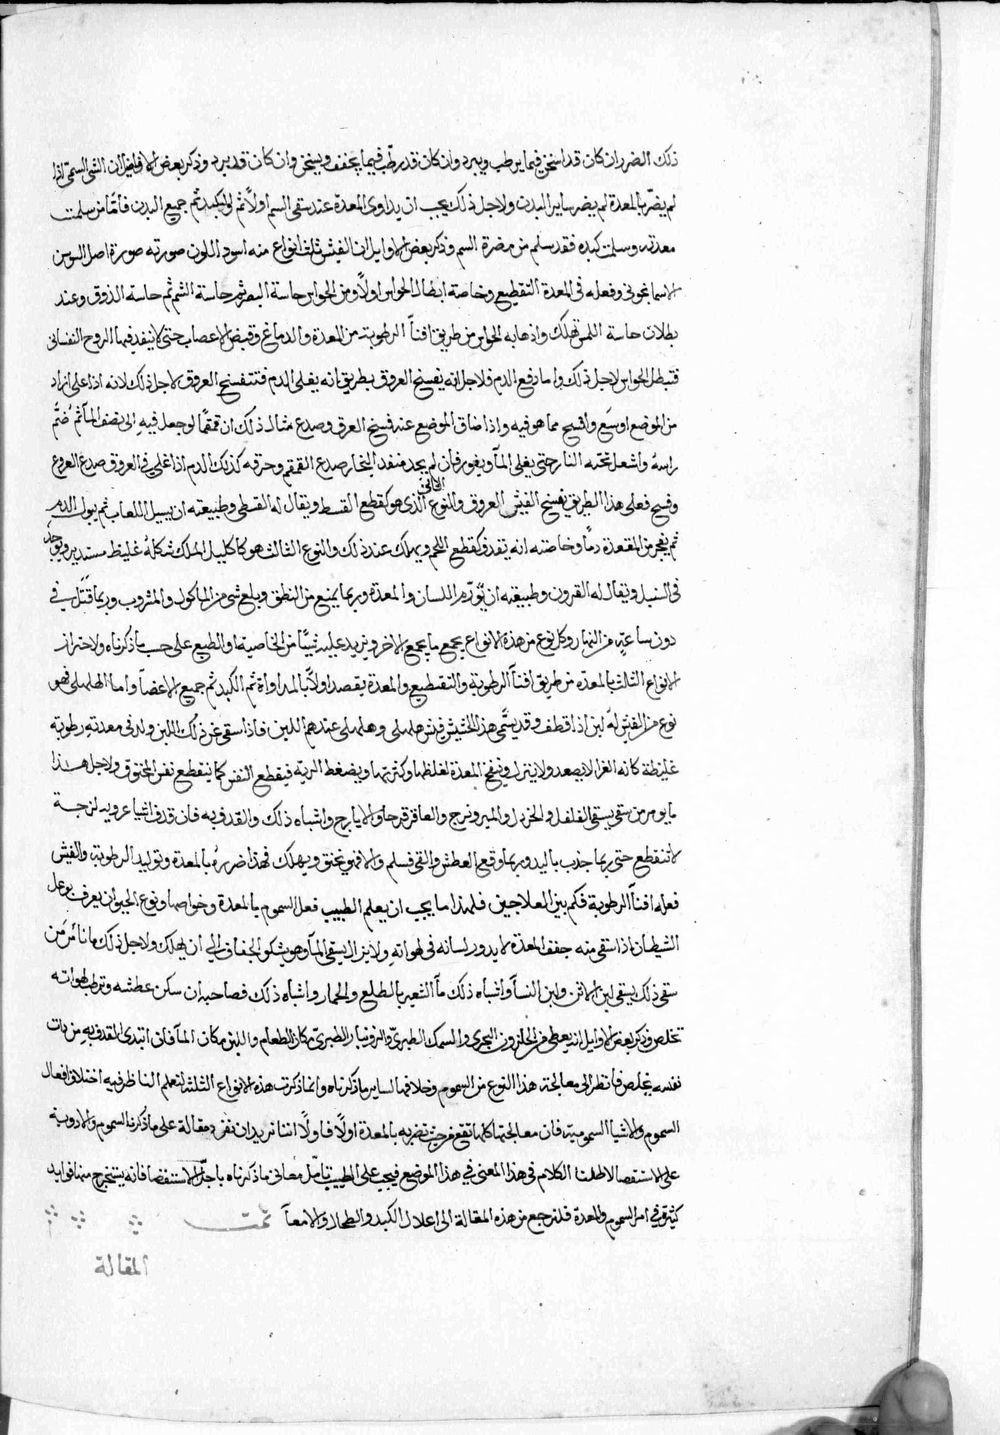 ذلك الضرر ان كان قد اسخن فيما يرطب ويبرد وان كان قد رطب فيما يجفف ويسخن وان كان قد يبرد وذكر بعض الافاضل ان الشي السمي اذا
لم يضر بالمعدة لم يضر ساير البدن ولاجل ذلك يجب ان يداوى المعدة عند سقى السم اولاً ثم الكبد ثم جميع البدن فاما من سلمت
معدته وسلمت كبده فقد سلم من مضرة السم وذكر بعض الاوايل ان الفيش ثلث انواع منه اسود اللون صورته صورة اصل السوسن
الاسمانجونى وفعله فى المعدة التقطيع وخاصة ابطال الحواس اولاً ومن الحواس حاسة البصر ثم حاسة الشم ثم حاسة الذوق وعند
بطلان حاسة اللمس تهلك واذهابه الحواس من طريق افنآ الرطوبة من المعدة والدماغ وقبض الاعصاب حتى لا ينفد فيها الروح النفسانى
فتبطل الحواس لاجل ذلك واما دفع الدم فلاجل انه يفسخ العروق بطريق انه يغلى الدم فتنفسخ العروق لاجل ذلك لانه اذا غلى اراد
من الموضع اوسع وافسح مما هو فيه واذا ضاق الموضع عنه فسخ العرق وصدع مثال ذلك ان قمقمًا لو جعل فيه الى نصف المآ ثم ضم
راسه واشعل تحته النار حتى يغلى المآ ويفور فان لم يجد منفد البخار صدع القمقم وخرقه كذلك الدم اذا غلى فى العروق صدع العروق
وفسخ فعلى هذا الطريق يفسخ الفيش العروق والنوع الثانى الذى هو كقطع القسط ويقال له القسطى وطبيعته ان يسيل اللعاب ثم يبول الدم
ثم يفجر من المقعدة دماً وخاصته انه يقدف كقطع اللحم ويهلك عند ذلك والنوع الثالث هو كاكليل الملك شكله غليظ مستدير ويوجد
فى السنبل ويقال له القرون وطبيعته ان يورم اللسان والمعدة وربما يمنع من النطق وبلع شى من الماكول والمشروب وربما قتل فى
دون ساعة من النهار وكل نوع من هذه الانواع يجمع ما يجمع الاخر ويزيد عليه شيًا من الخاصية والطبع على حسب ما ذكرناه ولاحتراز
الانواع الثلث بالمعدة من طريق افنآ الرطوبة والتقطيع والمعدة يقصد اولاً بالمداواة ثم الكبد ثم جميع الاعضآ واما الهلهلى فهو
نوع من الفيش له لبن اذا قطف وقد يسمى هذا الحشيش فيش هلهلى وهلهلى عندهم اللبن فاذا سقى من ذلك اللبن ولد فى معدته رطوبة
غليظة كانه الغرا لا يصعد ولا ينزل وينفخ المعدة لغلظها وكثرتها ويضغط الرية فيقطع النفس كما ينقطع نفس المختنق ولاجل هذا
ما يومر من سقى يسقى الفلفل والخردل والميويزج والعاقرقرحا والايارج واشباه ذلك والقدف به فان قدف اشيا غرويه لزجة
لا تنقطع حتى ربما جذب باليد وربما وقع العطش والقى فسلم والا فهو يختنق ويهلك فهذا ضرره بالمعدة وتوليد الرطوبة والفيش
فعله افنآ الرطوبة فكم بين المعلاجين فلهذا ما يجب ان يعلم الطبيب فعل السموم بالمعدة وخواصها ونوع الحيوان يعرف بوعل
الشيطان اذا سقى منه جفف المعدة لا يدور لسانه فى لهواته ولا يزال يسقى المآ وهو يشكو الجفاف الى ان يهلك ولاجل ذلك ما نامر من
سقى ذلك يسقى لبن الاتن ولبن النسآ واشباه ذلك مآ الشعير بالطلع والجمار واشباه ذلك فصاحبه ان سكن عطشه وترطب لهواته
تخلص وذكر بعض الاوايل انه يعطى من الحلزون البحرى والسمك الطبرى مكان الطعام واللبن مكان المآ فان ابتدى القدف به من ذات
نفسه يخلص فانظر الى معالجة هذا النوع من السموم وخلافها لساير ما ذكرناه وانما ذكرت هذه الانواع الثلثة لتعلم الناظر فيه اختلاف افعال
السموم والاشيا السمومية فان معالجتها كلها تقع من حيث تضر به بالمعدة اولاً فاولاً اننا نريد ان نفرد مقالة على ما ذكرنا السموم والادوية
على الاستقصا لاطلنا الكلام فى هذا المعنى فى هذا الموضع فيجب على الطبيب تامل معانى ما ذكرناه باجل الاستقصا فانه يستخرج منها فوايد
كثيرة فى امر السموم والمعدة فلنرجع من هذه المقالة الى اعلال الكبد والطحال والامعآ تمت
المقالة